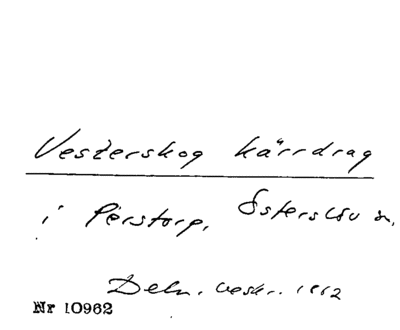 Vesterskog kärrdrag
i Perstorp, Österslöv sn,
Deln. beskr. 1862
Nr 10962